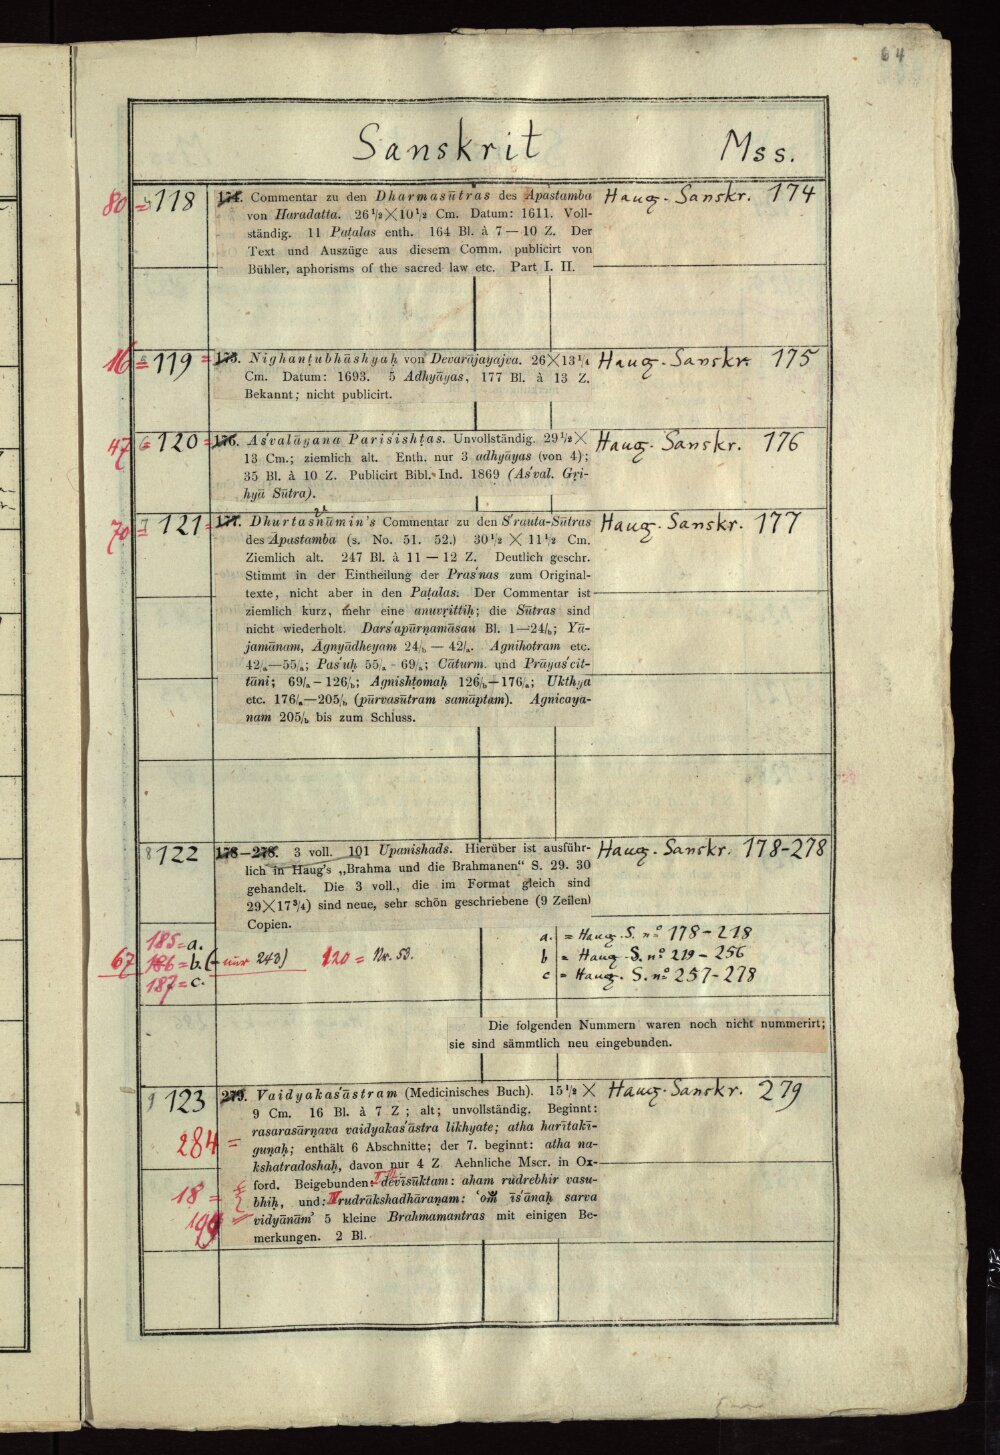 64
Sanskrit Mss.
80 = 118 174. Commentar zu den Dharmasūtras des Āpastamba Haug. Sanskr. 174
von Haradatta. 26 1/2 × 10 1/2 Cm. Datum: 1611. Voll-
ständig. 11 Paṭalas enth. 164 Bl. à 7—10 Z. Der
Text und Auszüge aus diesem Comm. publicirt von
Bühler, aphorisms of the sacred law etc. Part I. II.
16 = 119 = 175. Nighaṇṭubhāshyaḥ von Devarājayajva. 26 × 13 1/4 Haug. Sanskr. 175
Cm. Datum: 1693. 5 Adhyāyas, 177 Bl. à 13 Z.
Bekannt; nicht publicirt.
47 = 120 = 176. Ās'valāyana Paris'ishṭas. Unvollständig. 29 1/2 × Haug. Sanskr. 176
13 Cm.; ziemlich alt. Enth. nur 3 adhyāyas (von 4);
35 Bl. à 10 Z. Publicirt Bibl. Ind. 1869 (Ās'val. Gṛi-
hyā Sūtra).
70 = 121 = 177. Dhurtasnūmin's Commentar zu den S'rauta-Sūtras Haug. Sanskr. 177
des Āpastamba (s. No. 51. 52.) 30 1/2 × 11 1/2 Cm.
Ziemlich alt. 247 Bl. à 11—12 Z. Deutlich geschr.
Stimmt in der Eintheilung der Pras'nas zum Original-
texte, nicht aber in den Paṭalas. Der Commentar ist
ziemlich kurz, mehr eine anuvṛittiḥ; die Sūtras sind
nicht wiederholt. Dars'apūrṇamāsau Bl. 1—24/b; Yā-
jamānam, Āgnyādheyam 24/b — 42/a. Agnihotram etc.
42/a—55/a; Pas'uḥ 55/a - 69/a; Cāturm. und Prāyas'cit-
tāni; 69/a - 126/b; Agnishṭomaḥ 126/b—176/a; Ukthya
etc. 176/a—205/b (pūrvasūtram samāptam). Agnicaya-
nam 205/b bis zum Schluss.
8 122 178—278. 3 voll. 101 Upanishads. Hierüber ist ausführ- Haug. Sanskr. 178-278
lich in Haug's „Brahma und die Brahmanen“ S. 29. 30
gehandelt. Die 3 voll., die im Format gleich sind
29 × 17 3/4) sind neue, sehr schön geschriebene (9 Zeilen)
Copien.
185 = a. a. = Haug. S. no 178-218
67 186 = b. (= nur 243) 120 = Nr. 53. b = Haug S. no 219-256
187 = c. c = Haug. S. no 257-278
Die folgenden Nummern waren noch nicht nummerirt;
sie sind sämmtlich neu eingebunden.
9 123 279. Vaidyakas'āstram (Medicinisches Buch). 15 1/2 × Haug. Sanskr. 279
9 Cm. 16 Bl. à 7 Z; alt; unvollständig. Beginnt:
284 = rasarasārṇava vaidyakas'āstra likhyate; atha harītakī-
guṇaḥ; enthält 6 Abschnitte; der 7. beginnt: atha na-
kshatradoshaḥ, davon nur 4 Z Aehnliche Mscr. in Ox-
ford. Beigebunden: I devīsūktam: aham rudrebhir vasu-
18 = bhiḥ, und: II rudrākshadhāraṇam: 'om īs'ānaḥ sarva
199 = vidyānām' 5 kleine Brahmamantras mit einigen Be-
merkungen. 2 Bl.